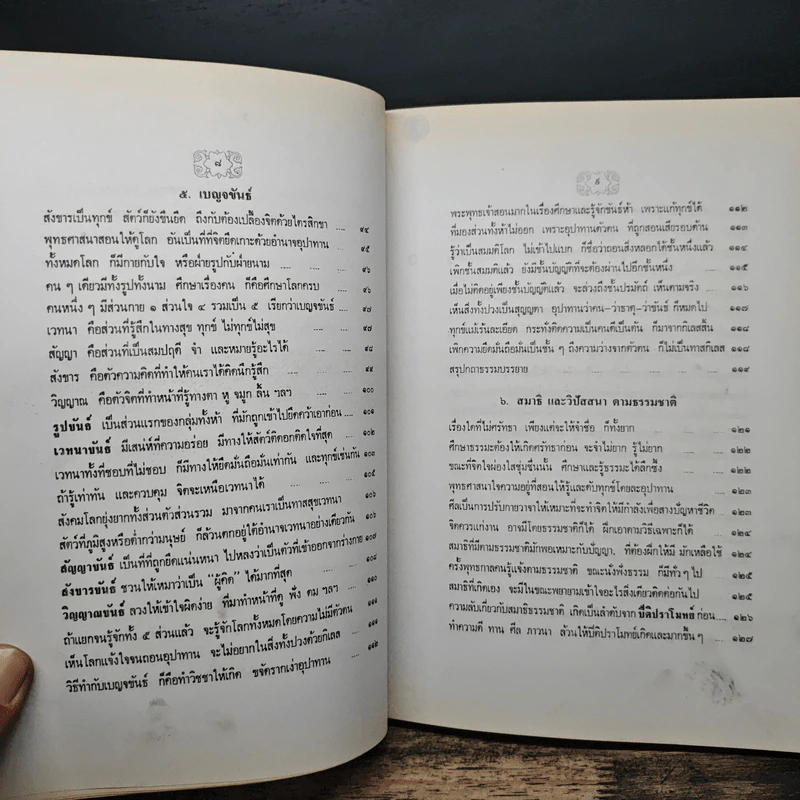 ๘
๕. เบญจขันธ์
สังขารเป็นทุกข์ สัตว์ก็ยังขืนยึด ถึงกับต้องเปลื้องจิตด้วยไตรสิกขา .... ๙๔
พุทธศาสนาสอนให้ดูโลก อันเป็นที่ที่จิตยึดเกาะด้วยอำนาจอุปาทาน .... ๙๕
ทั้งหมดโลก ก็มีกายกับใจ หรือฝ่ายรูปกับฝ่ายนาม .... .... ๙๖
คน ๆ เดียวมีทั้งรูปทั้งนาม ศึกษาเรื่องคน ก็คือศึกษาโลกครบ .... ๙๖
คนหนึ่ง ๆ มีส่วนกาย ๑ ส่วนใจ ๔ รวมเป็น ๕ เรียกว่าเบญจขันธ์ .... ๙๖
เวทนา คือส่วนที่รู้สึกในทางสุข ทุกข์ ไม่ทุกข์ไม่สุข .... .... ๙๗
สัญญา คือส่วนที่เป็นสมปฤดี จำ และหมายรู้อะไรได้ .... .... ๙๘
สังขาร คือตัวความคิดที่ทำให้คนเราได้คิดนึกรู้สึก .... .... ๙๙
วิญญาณ คือตัวจิตที่ทำหน้าที่รู้ทางตา หู จมูก ลิ้น ฯลฯ .... .... ๑๐๐
รูปขันธ์ เป็นส่วนแรกของกลุ่มทั้งห้า ที่มักถูกเข้าไปยึดคว้าเอาก่อน .... ๑๐๑
เวทนาขันธ์ มีเสน่ห์ที่ความอร่อย มีทางให้สัตว์ติดอกติดใจที่สุด .... ๑๐๒
เวทนาทั้งที่ชอบที่ไม่ชอบ ก็มีทางให้ยึดมั่นถือมั่นเท่ากัน และทุกข์เช่นกัน
ถ้ารู้เท่าทัน และควบคุม จิตจะเหนือเวทนาได้ .... .... ๑๐๕
สังคมโลกยุ่งยากทั้งส่วนตัวส่วนรวม มาจากคนเราเป็นทาสสุขเวทนา .... ๑๐๖
สัตว์ที่ภูมิสูงหรือต่ำกว่ามนุษย์ ก็ล้วนตกอยู่ใต้อำนาจเวทนาอย่างเดียวกัน
สัญญาขันธ์ เป็นที่ที่ถูกยึดแน่นหนา ไปหลงว่าเป็นตัวที่เข้าออกจากร่างกาย
สังขารขันธ์ ชวนให้เหมาว่าเป็น "ผู้คิด" ได้มากที่สุด .... ....
วิญญาณขันธ์ ลวงให้เข้าใจผิดง่าย ที่มาทำหน้าที่ดู ฟัง ดม ฯลฯ ....
ถ้าแยกจนรู้จักทั้ง ๕ ส่วนแล้ว จะรู้จักโลกทั้งหมดโดยความไม่มีตัวตน
เห็นโลกแจ้งใจจนถอนอุปาทาน จะไม่อยากในสิ่งทั้งปวงด้วยกิเลส ....
วิธีทำกับเบญจขันธ์ ก็คือทำวิชชาให้เกิด ขจัดรากเง่าอุปาทาน .... ๑๑๒
๙
พระพุทธเจ้าสอนมากในเรื่องศึกษาและรู้จักขันธ์ห้า เพราะแก้ทุกข์ได้ ๑๑๒
ที่มองส่วนทั้งห้าไม่ออก เพราะอุปาทานตัวตน ที่ถูกสอนเสี้ยมรอบด้าน ๑๑๓
รู้ว่าเป็นสมมติโลก ไม่เข้าไปแบก ก็ชื่อว่าถอนสิ่งหลอกได้ชั้นหนึ่งแล้ว
เพิกชั้นสมมติแล้ว ยังมีชั้นบัญญัติที่จะต้องผ่านไปอีกชั้นหนึ่ง .... ๑๑๕
เมื่อไม่ติดอยู่เพียงชั้นบัญญัติแล้ว จะล่วงถึงชั้นปรมัตถ์ เห็นตามจริง ๑๑๖
เห็นสิ่งทั้งปวงเป็นสุญญตา อุปาทานว่าคน-ว่าธาตุ-ว่าขันธ์ ก็หมดไป ๑๑๗
ทุกข์แม้เร้นละเอียด กระทั่งคิดว่าเป็นคนดีเป็นต้น ก็มาจากกิเลสสิ้น ๑๑๘
เพิกความยึดมั่นถือมั่นเป็นชั้น ๆ ถึงความว่างจากตัวตน ก็ไม่เป็นทาสกิเลส ๑๑๘
สรุปกถาธรรมบรรยาย .... .... .... .... ๑๑๙
๖. สมาธิ และวิปัสสนา ตามธรรมชาติ
เรื่องใดที่ไม่ศรัทธา เพียงแต่จะให้จำชื่อ ก็ทั้งยาก .... .... ๑๒๑
ศึกษาธรรมะต้องให้เกิดศรัทธาก่อน จะจำไม่ยาก รู้ไม่ยาก .... ๑๒๒
ขณะที่จิตใจผ่องใสชุ่มชื่นนั้น ศึกษาและรู้ธรรมะได้ลึกซึ้ง .... .... ๑๒๒
พุทธศาสนาใจความอยู่ที่สอนให้รู้และดับทุกข์โดยละอุปาทาน .... ๑๒๓
ศีลเป็นการปรับกายวาจาให้เหมาะที่จะทำจิตให้มีกำลังเพื่อสางปัญหาชีวิต
จิตควรแก่งาน อาจมีโดยธรรมชาติก็ได้ ฝึกเอาตามวิธีเฉพาะก็ได้ .... ๑๒๓
สมาธิที่มีตามธรรมชาติมักพอเหมาะกับปัญญา. ที่ต้องฝึกให้มี มักเหลือใช้ ๑๒๔
ครั้งพุทธกาลคนรู้แจ้งตามธรรมชาติ ขณะนั่งฟังธรรม ก็มีทั่ว ๆ ไป .... ๑๒๕
สมาธิที่เกิดเอง จะมีในขณะพยายามเข้าใจอะไรสิ่งเดียวติดต่อกันไป .... ๑๒๕
ความลับเกี่ยวกับสมาธิธรรมชาติ เกิดเป็นลำดับจาก ปีติปราโมทย์ ก่อน .... ๑๒๖
ทำความดี ทาน ศีล ภาวนา ล้วนให้ปีติปราโมทย์เกิดและมากขึ้น ๆ .... ๑๒๗